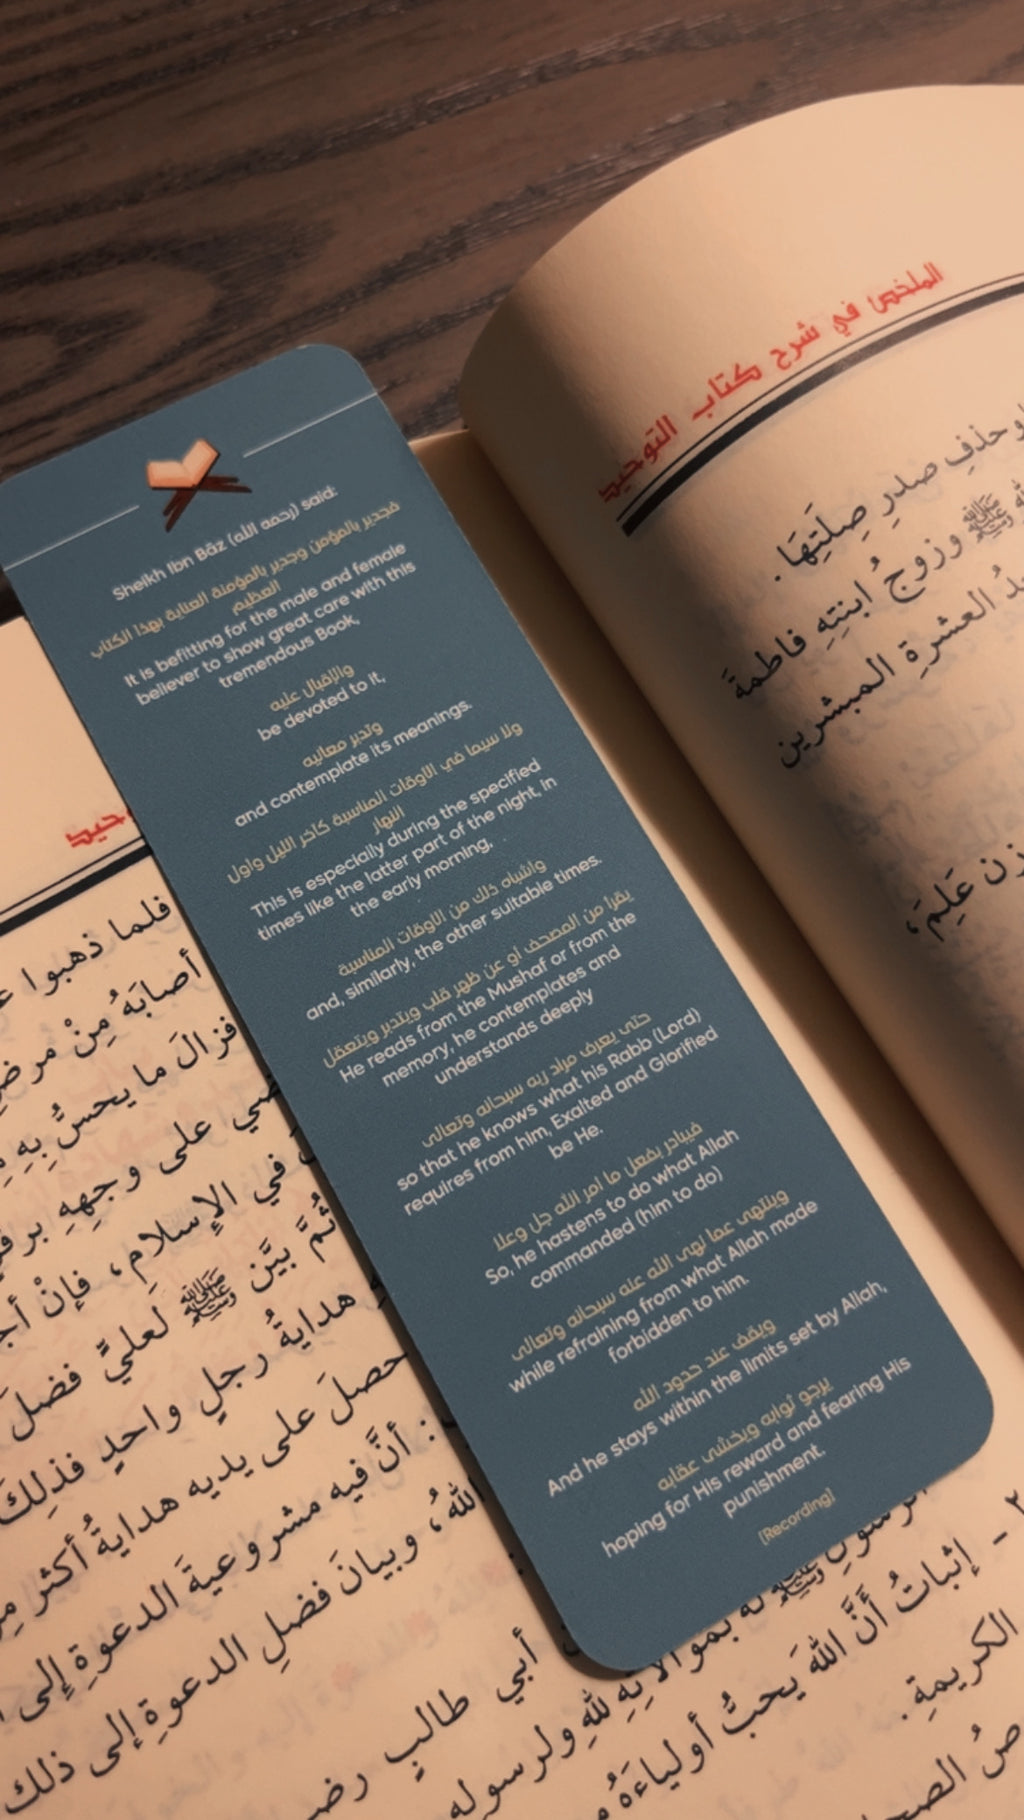 Sheikh Ibn Bāz (رحمه الله) said:
فجدير بالمؤمن وجدير بالمؤمنة العناية بهذا الكتاب
العظيم
It is befitting for the male and female
believer to show great care with this
tremendous Book,
والإقبال عليه
be devoted to it,
وتدبر معانيه
and contemplate its meanings.
ولا سيما في الأوقات المناسبة كآخر الليل وأول
النهار
This is especially during the specified
times like the latter part of the night, in
the early morning,
وأشباه ذلك من الأوقات المناسبة
and, similarly, the other suitable times.
يقرأ من المصحف أو عن ظهر قلب ويتدبر ويتعقل
He reads from the Mushaf or from the
memory, he contemplates and
understands deeply
حتى يعرف مراد ربه سبحانه وتعالى
so that he knows what his Rabb (Lord)
requires from him, Exalted and Glorified
be He.
فيبادر بفعل ما أمر الله جل وعلا
So, he hastens to do what Allah
commanded (him to do)
وينتهي عما نهى الله عنه سبحانه وتعالى
while refraining from what Allah made
forbidden to him.
ويقف عند حدود الله
And he stays within the limits set by Allah,
يرجو ثوابه ويخشى عقابه
hoping for His reward and fearing His
punishment.
[Recording]
الملخص في شرح كتاب التوحيد
حذفِ صدرِ صِلَتِهَا.
ﷺ وزوجُ ابنتِهِ فاطمةَ
العشرةِ المبشرين
عَلِمَ،
فلما ذهبوا
أصابَهُ مِنْ مرضٍ
فزالَ ما يحسُّ بِهِ
على وجهِهِ
في الإسلامِ، فإنْ
ثُمَّ بيَّن ﷺ لعليٍّ فضلَ
هدايةُ رجلٍ واحدٍ فذلِكَ
حصلَ على يديه هدايةُ أكثر
: أنَّ فيه مشروعيةَ الدعوةِ إلى
اللهُ، وبيانَ فضلِ الدعوةِ إلى ذلك
أبي طالبٍ
٢ - إثباتُ أَنَّ اللهَ يحبُّ أولياءَهُ
الكريمةِ.